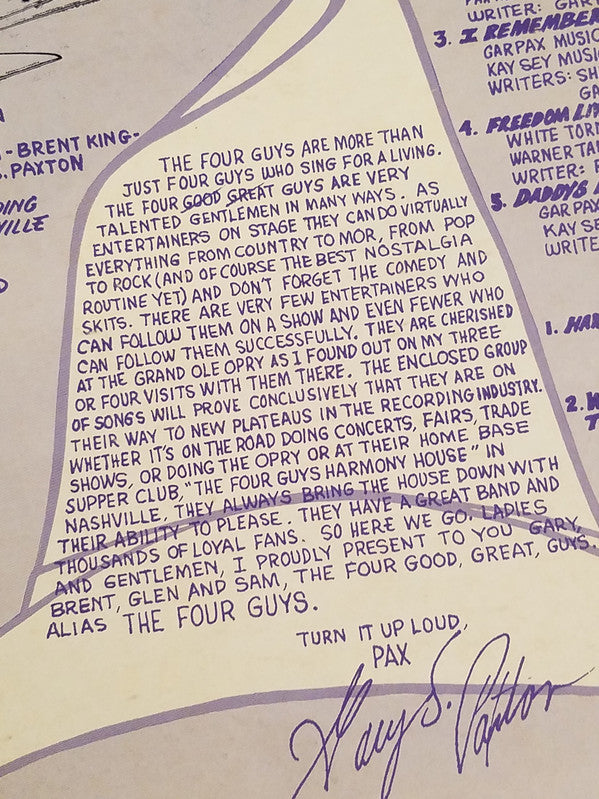 WRITER: GAR
3. I REMEMBER
GARPAX MUSIC
KAY SEY MUSIC
WRITERS: SH
GA
4. FREEDOM LIV
WHITE TORN
WARNER TA
WRITER:
5. DADDYS
GARPAX
KAY SE
WRITE
1. HAR
2. W
T
- BRENT KING-
S. PAXTON
DING
VILLE
THE FOUR GUYS ARE MORE THAN
JUST FOUR GUYS WHO SING FOR A LIVING.
THE FOUR GOOD GREAT GUYS ARE VERY
TALENTED GENTLEMEN IN MANY WAYS. AS
ENTERTAINERS ON STAGE THEY CAN DO VIRTUALLY
EVERYTHING FROM COUNTRY TO MOR, FROM POP
TO ROCK (AND OF COURSE THE BEST NOSTALGIA
ROUTINE YET) AND DON'T FORGET THE COMEDY AND
SKITS. THERE ARE VERY FEW ENTERTAINERS WHO
CAN FOLLOW THEM ON A SHOW AND EVEN FEWER WHO
CAN FOLLOW THEM SUCCESSFULLY. THEY ARE CHERISHED
AT THE GRAND OLE OPRY AS I FOUND OUT ON MY THREE
OR FOUR VISITS WITH THEM THERE. THE ENCLOSED GROUP
OF SONGS WILL PROVE CONCLUSIVELY THAT THEY ARE ON
THEIR WAY TO NEW PLATEAUS IN THE RECORDING INDUSTRY.
WHETHER IT'S ON THE ROAD DOING CONCERTS, FAIRS, TRADE
SHOWS, OR DOING THE OPRY OR AT THEIR HOME BASE
SUPPER CLUB, "THE FOUR GUYS HARMONY HOUSE" IN
NASHVILLE, THEY ALWAYS BRING THE HOUSE DOWN WITH
THEIR ABILITY TO PLEASE. THEY HAVE A GREAT BAND AND
THOUSANDS OF LOYAL FANS. SO HERE WE GO, LADIES
AND GENTLEMEN, I PROUDLY PRESENT TO YOU GARY,
BRENT, GLEN AND SAM, THE FOUR GOOD, GREAT, GUYS.
ALIAS THE FOUR GUYS.
TURN IT UP LOUD,
PAX
Gary S. Paxton